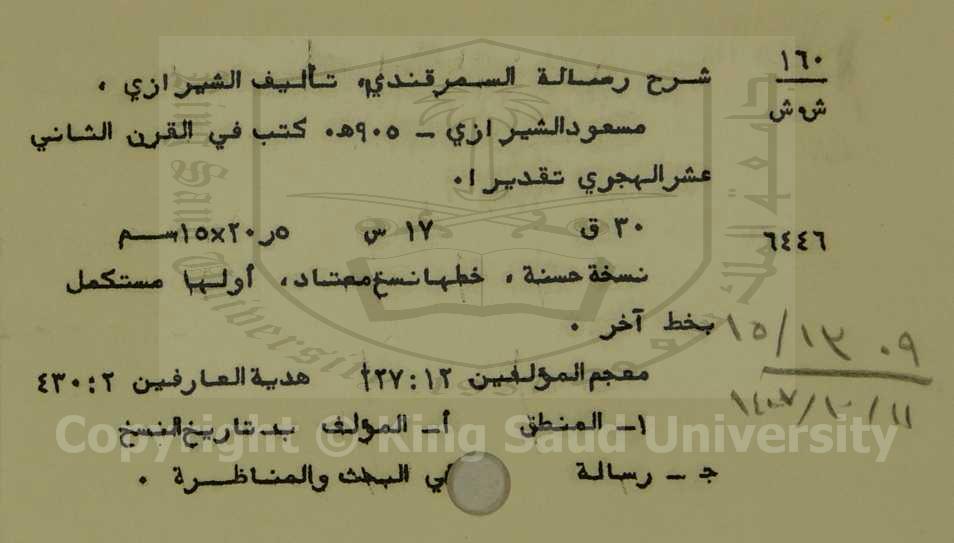 ١٦٠
ش٠ش
شرح رسالة السمرقندي، تأليف الشيرازي ٠
مسعود الشيرازي - ٩٠٥هـ٠ كتب في القرن الثاني
عشر الهجري تقديرا٠
٣٠ ق ١٧ س ٢٠x١٥ر٥ سم
٦٤٤٦
نسخة حسنة ، خطها نسخ معتاد، أولها مستكمل
بخط آخر ٠
معجم المؤلفين ١٢ : ٢٢٧ هدية العارفين ٢ : ٤٣٠
١- المنطق أ- المؤلف ب- تاريخ النسخ
ج - رسالة في البحث والمناظرة ٠
١٤٠٧/١٠/١١
Copyright © King Saud University